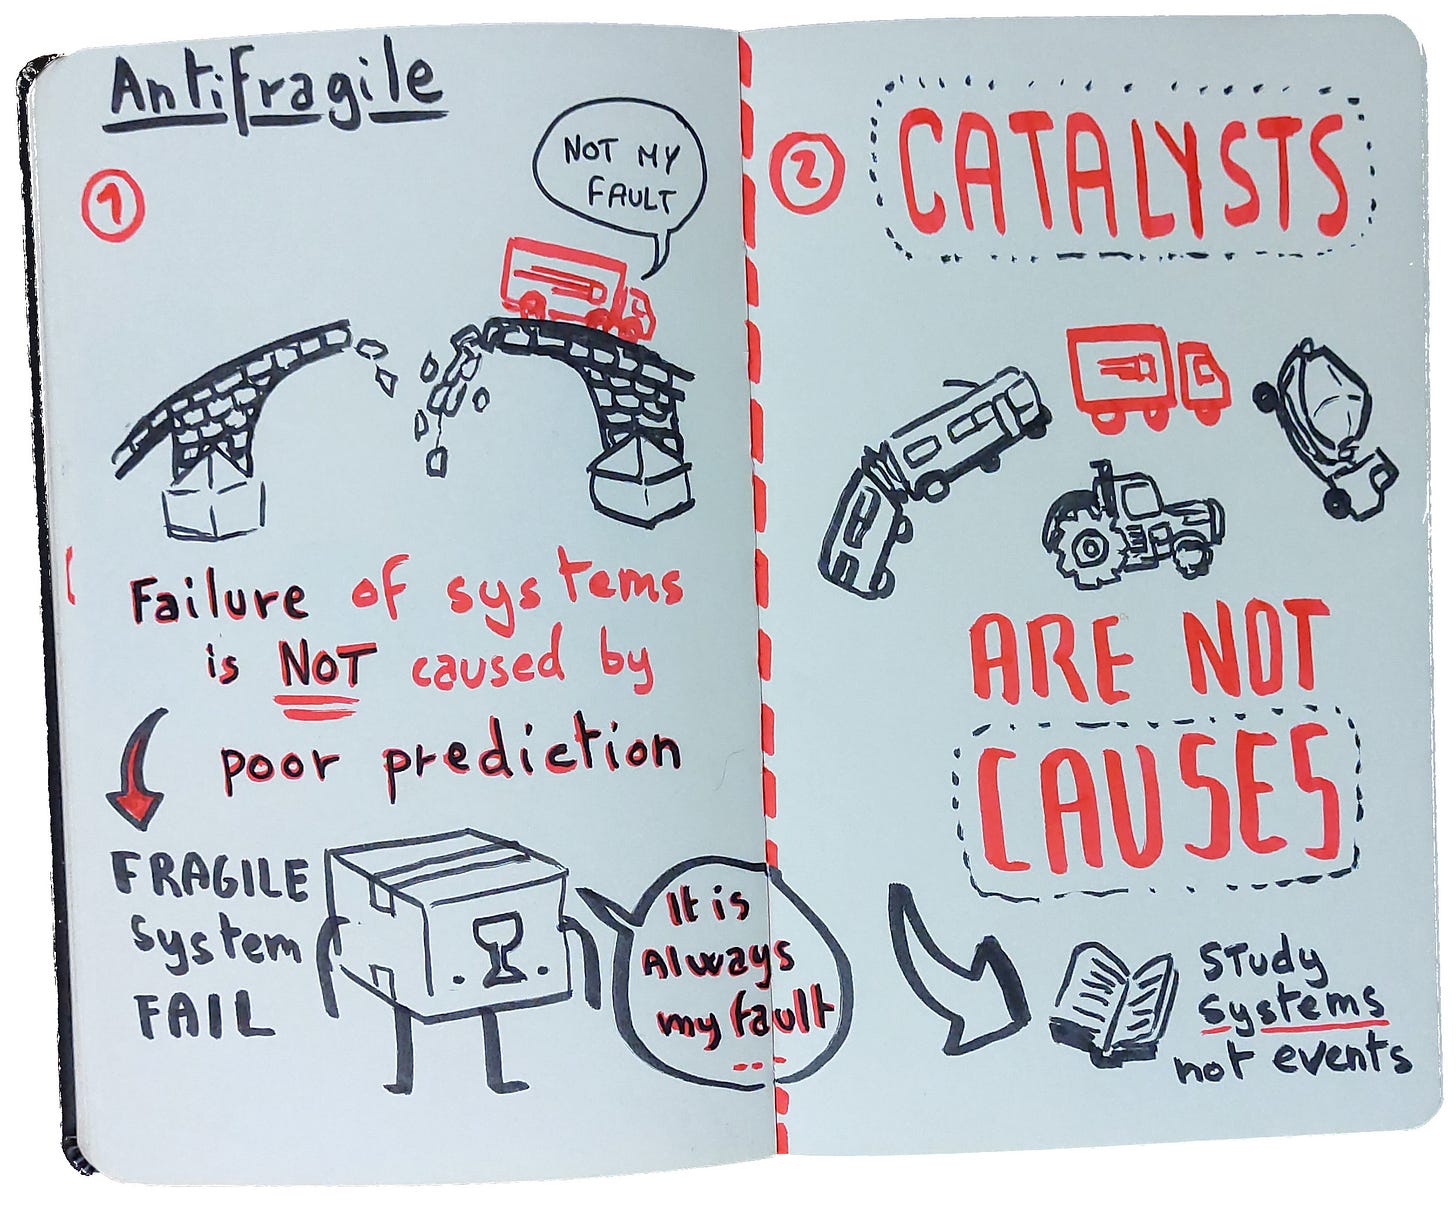 Antifragile
1
NOT MY
FAULT
Failure of systems
is NOT caused by
poor prediction
FRAGILE
system
FAIL
It is
Always
my fault
...
2
CATALYSTS
ARE NOT
CAUSES
STudy
systems
not events